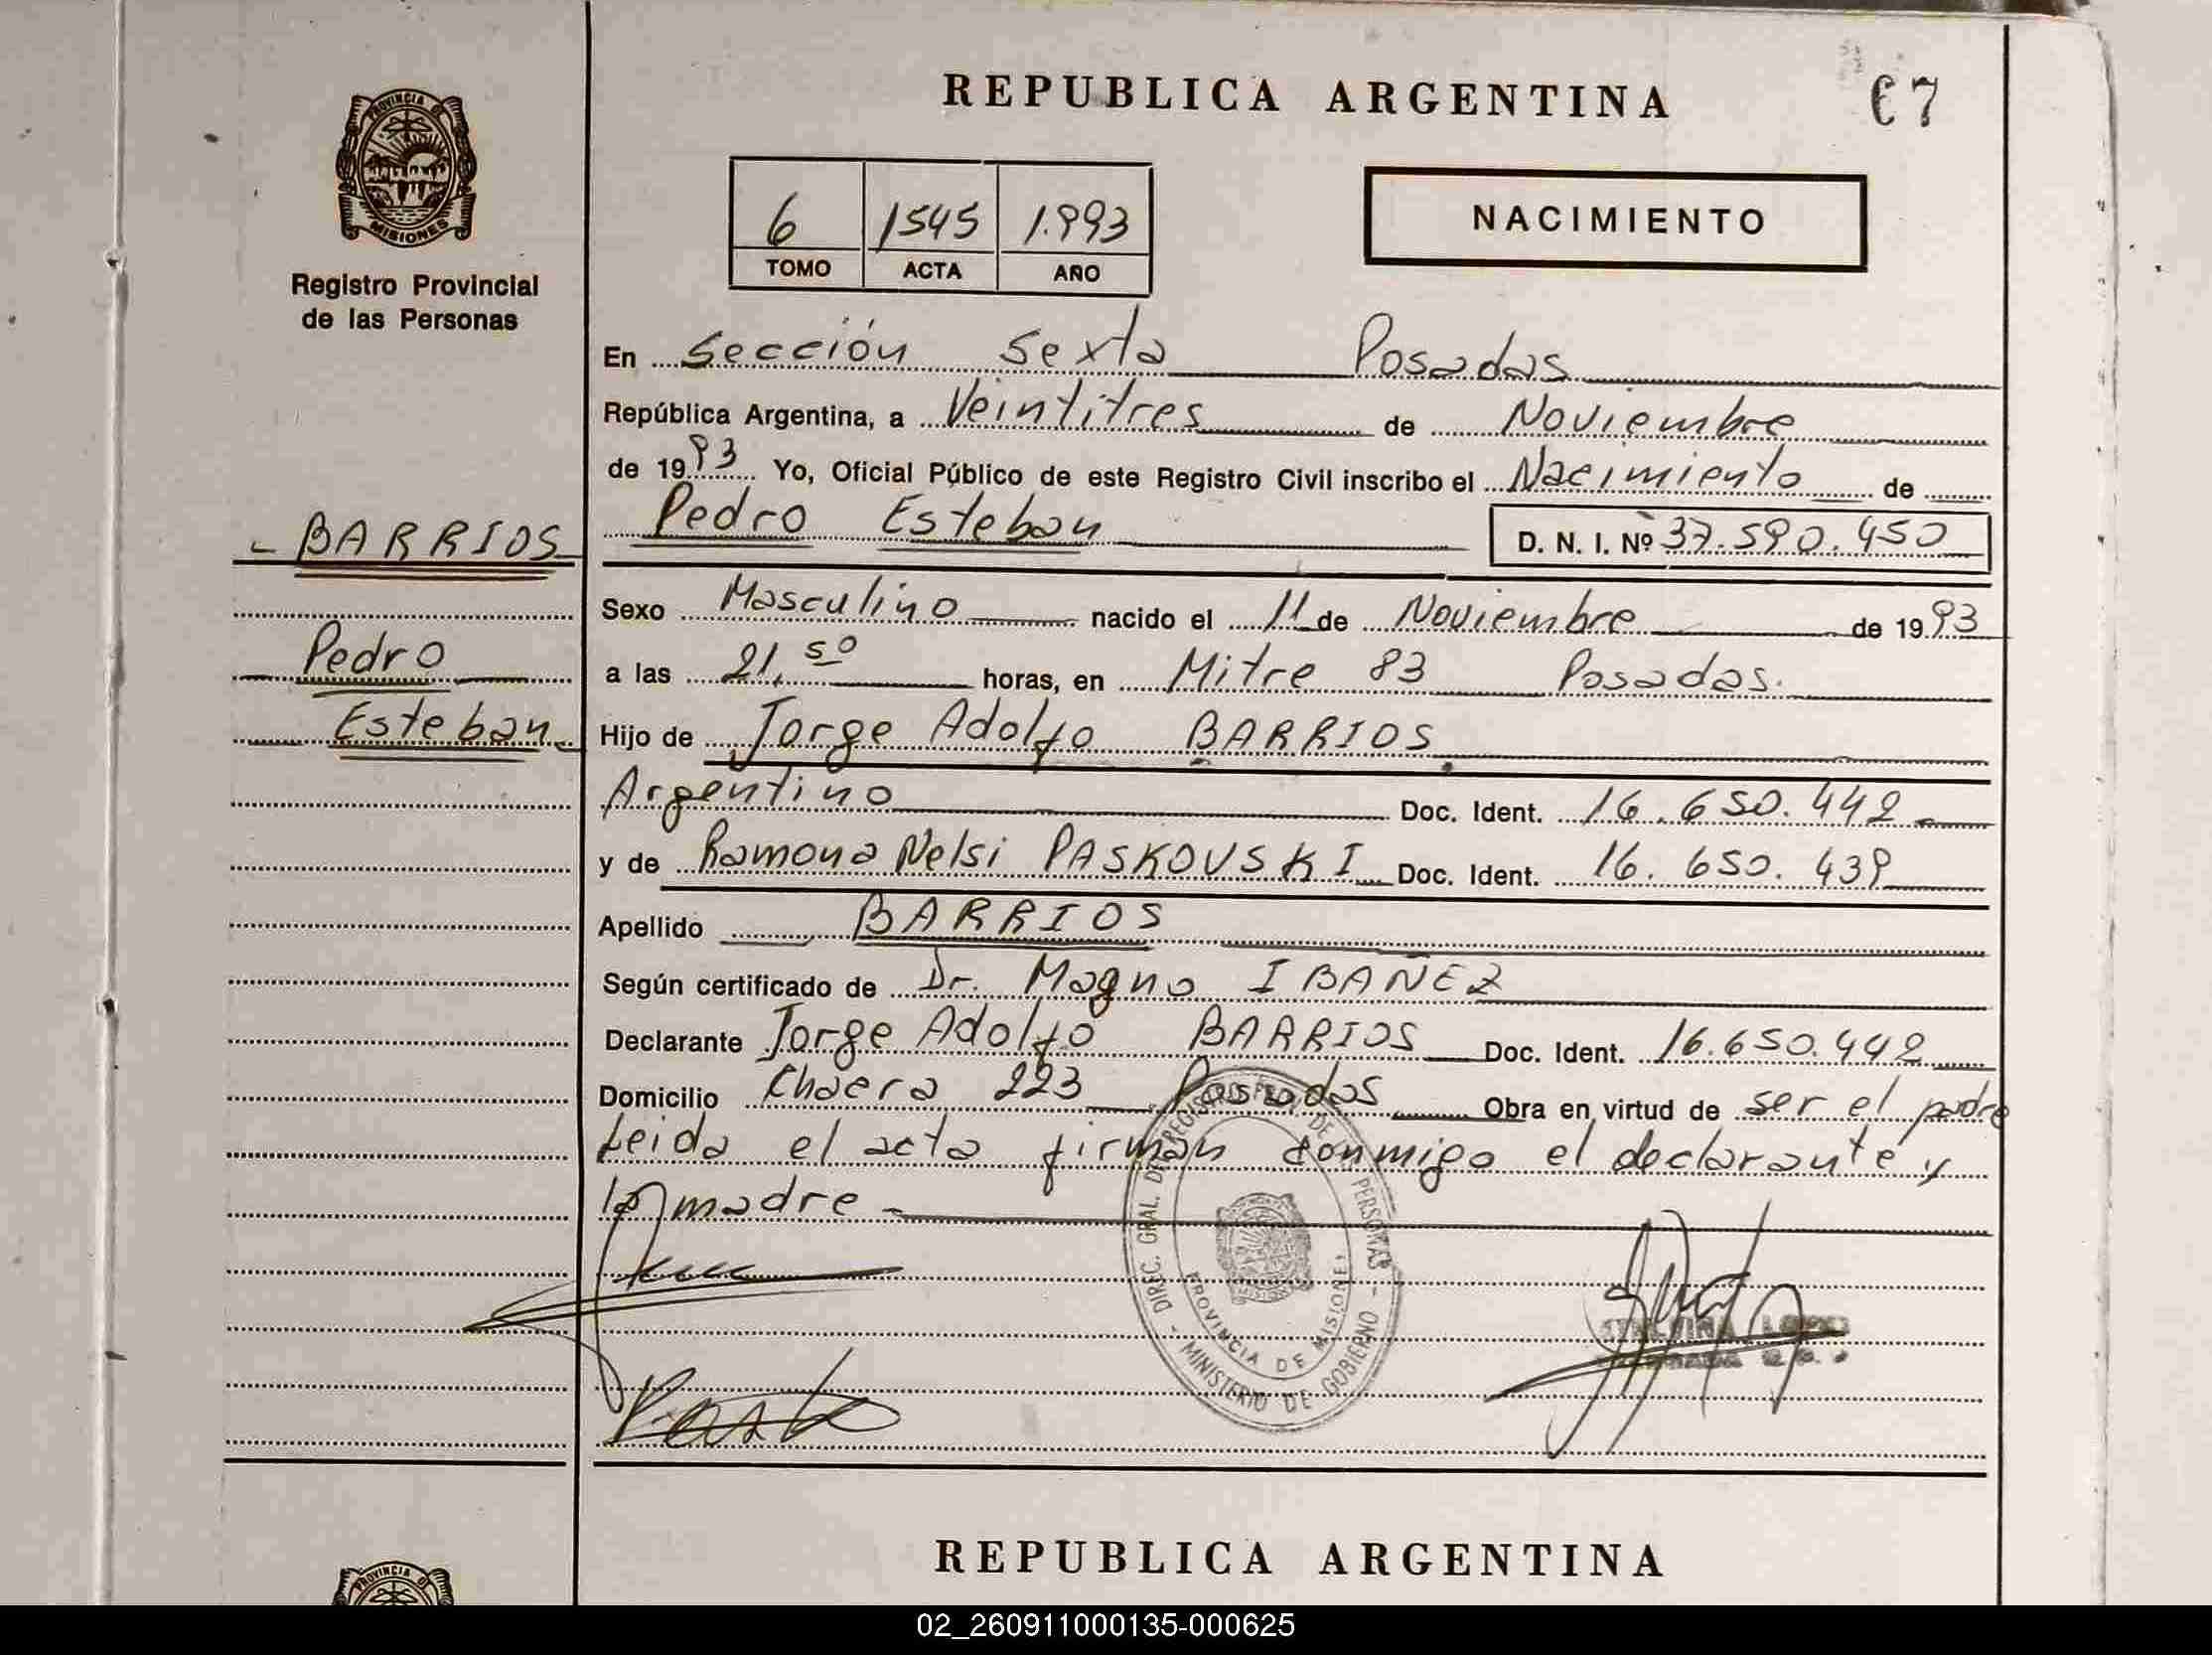 REPUBLICA ARGENTINA
7
PROVINCIA DE
MISIONES
Registro Provincial
de las Personas
6 1545 1.993
TOMO ACTA AÑO
NACIMIENTO
En Sección Sexta Posadas
República Argentina, a Veintitres de Noviembre
de 1993 Yo, Oficial Público de este Registro Civil inscribo el Nacimiento de
- BARRIOS
Pedro Esteban D. N. I. Nº 37.590.450
Sexo Masculino nacido el 11 de Noviembre de 1993
Pedro
a las 21,50 horas, en Mitre 83 Posadas.
Esteban
Hijo de Jorge Adolfo BARRIOS
Argentino Doc. Ident. 16.650.442
y de Ramona Nelsi PASKOVSKI Doc. Ident. 16.650.439
Apellido BARRIOS
Según certificado de Dr. Magno IBAÑEZ
Declarante Jorge Adolfo BARRIOS Doc. Ident. 16.650.442
Domicilio 223 Posadas Obra en virtud de ser el padre
Leida el acta firman conmigo el declarante y
la madre -
DIREC. GRAL. DEL REGISTRO PROV. DE LAS PERSONAS
PROVINCIA DE MISIONES
- MINISTERIO DE GOBIERNO -
REPUBLICA ARGENTINA
PROVINCIA DE
02_260911000135-000625